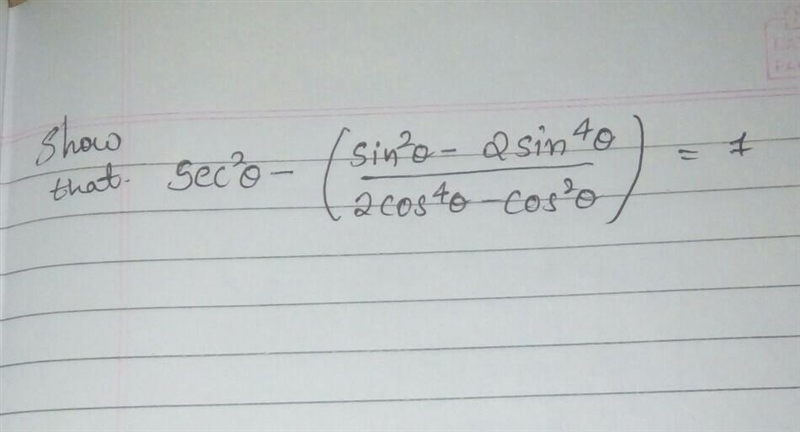 Show
that. sec²θ - (sin²θ - 2sin⁴θ / 2cos⁴θ - cos²θ) = 1